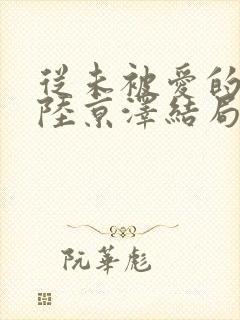 從未被愛的
陸京澤結局
阮華彪